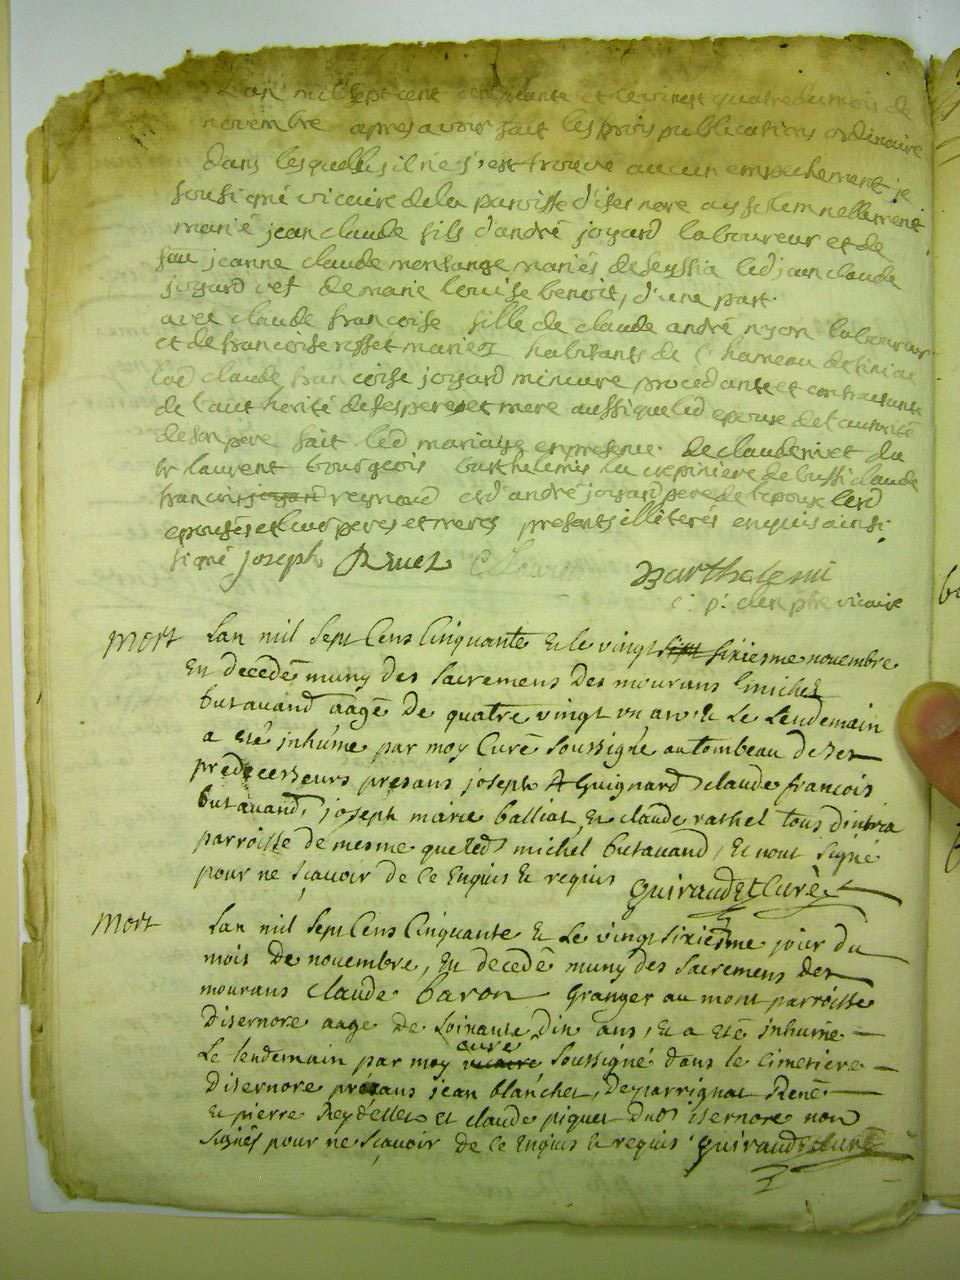 L'an mil sept cent cinquante et le vinst quatre du mois de
novembre apres avoir fait les trois publications ordinaire
dans lesquelles il ne s'est trouvé aucun empechement je
sousigné vicaire de la paroisse d'isernore ay solemnellement
marié jean claude fils d'andré joyard laboureur et de
feu jeanne claude monsange mariés de seyssia led jean claude
joyard vef de marie louise benoit, d'une part.
avec claude francoise fille de claude andré nyon laboureur
et de francoise rosset mariez habitants de l'hameau de
lad claude francoise joyard mineure procedante et contractante
de l'autherité de ses pere et mere aussi que led epouse de l'autorité
de son pere fait led mariage en presence de claude du
sr laurent bourgeois barthelemis la crepiniere de bussi claude
francois joyard reymond et d'andré joyard pere de l'epoux lesd
epousés et leur peres et meres presents illiterés enquis ainsi
signé joseph Ruet Barthelemi
p: vicaire
Mort Lan mil sept Cens Cinquante et le vingt sept sixiesme novembre
En decedé muny des sacremens des mourans Emichel
butavand aagé de quatre vingt un an et le lendemain
a eté inhumé par moy Curé soussigné au tombeau de ses
predecesseurs presans joseph A Guignard claude francois
butavand, joseph marie balliat, et claude rathel tous d'intria
parroisse de mesme que led michel butavand, et nont signé
pour ne sçavoir de ce Enquis et requis Guiraudet Curé
Mort Lan mil sept Cens Cinquante et le vingt sixiesme jour du
mois de novembre, en decedé muny des sacremens des
mourans claude baron Granger au mont parroisse
Disernore aagé de soixante dix ans, et a eté inhumé
curé
Le lendemain par moy vicaire soussigné dans le cimetiere
Disernore présans jean blanchet, de parrignat René
et pierre Reydellet et claude piquet dud isernore non
signés pour ne sçavoir de ce Enquis et requis Guiraudet curé